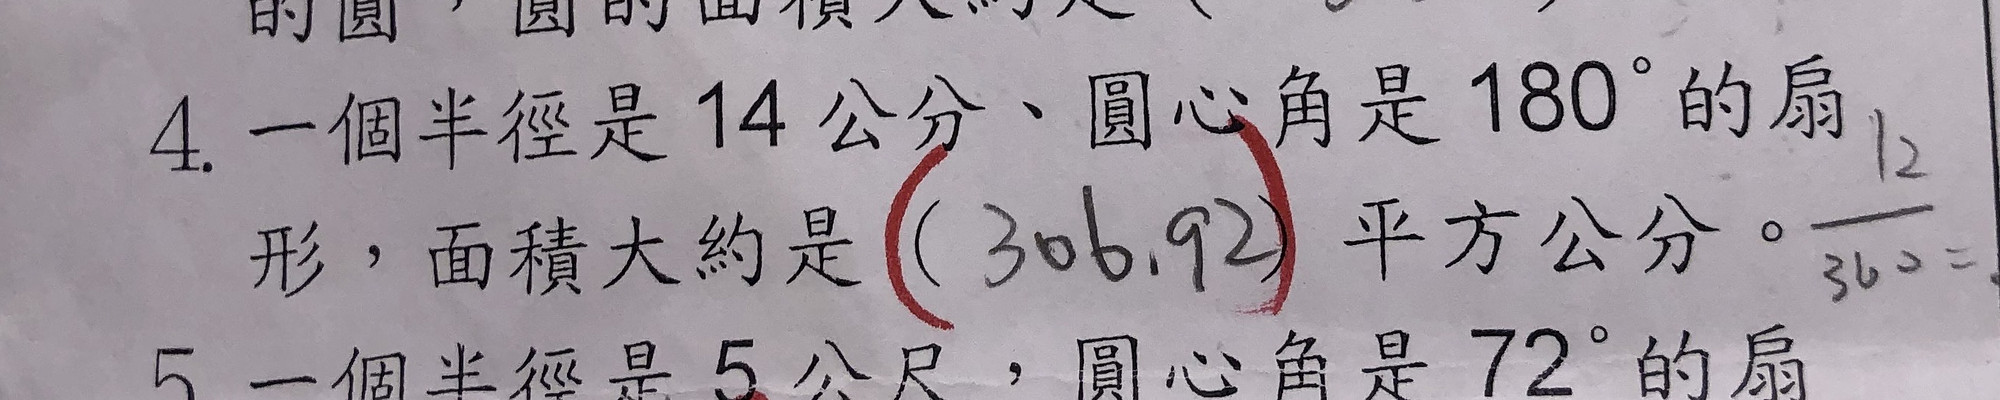 的圓，圓的面積大約是（
4. 一個半徑是 14 公分、圓心角是 180°的扇
形，面積大約是（306.92）平方公分。
12
360 =
5 一個半徑是 5 公尺，圓心角是 72°的扇